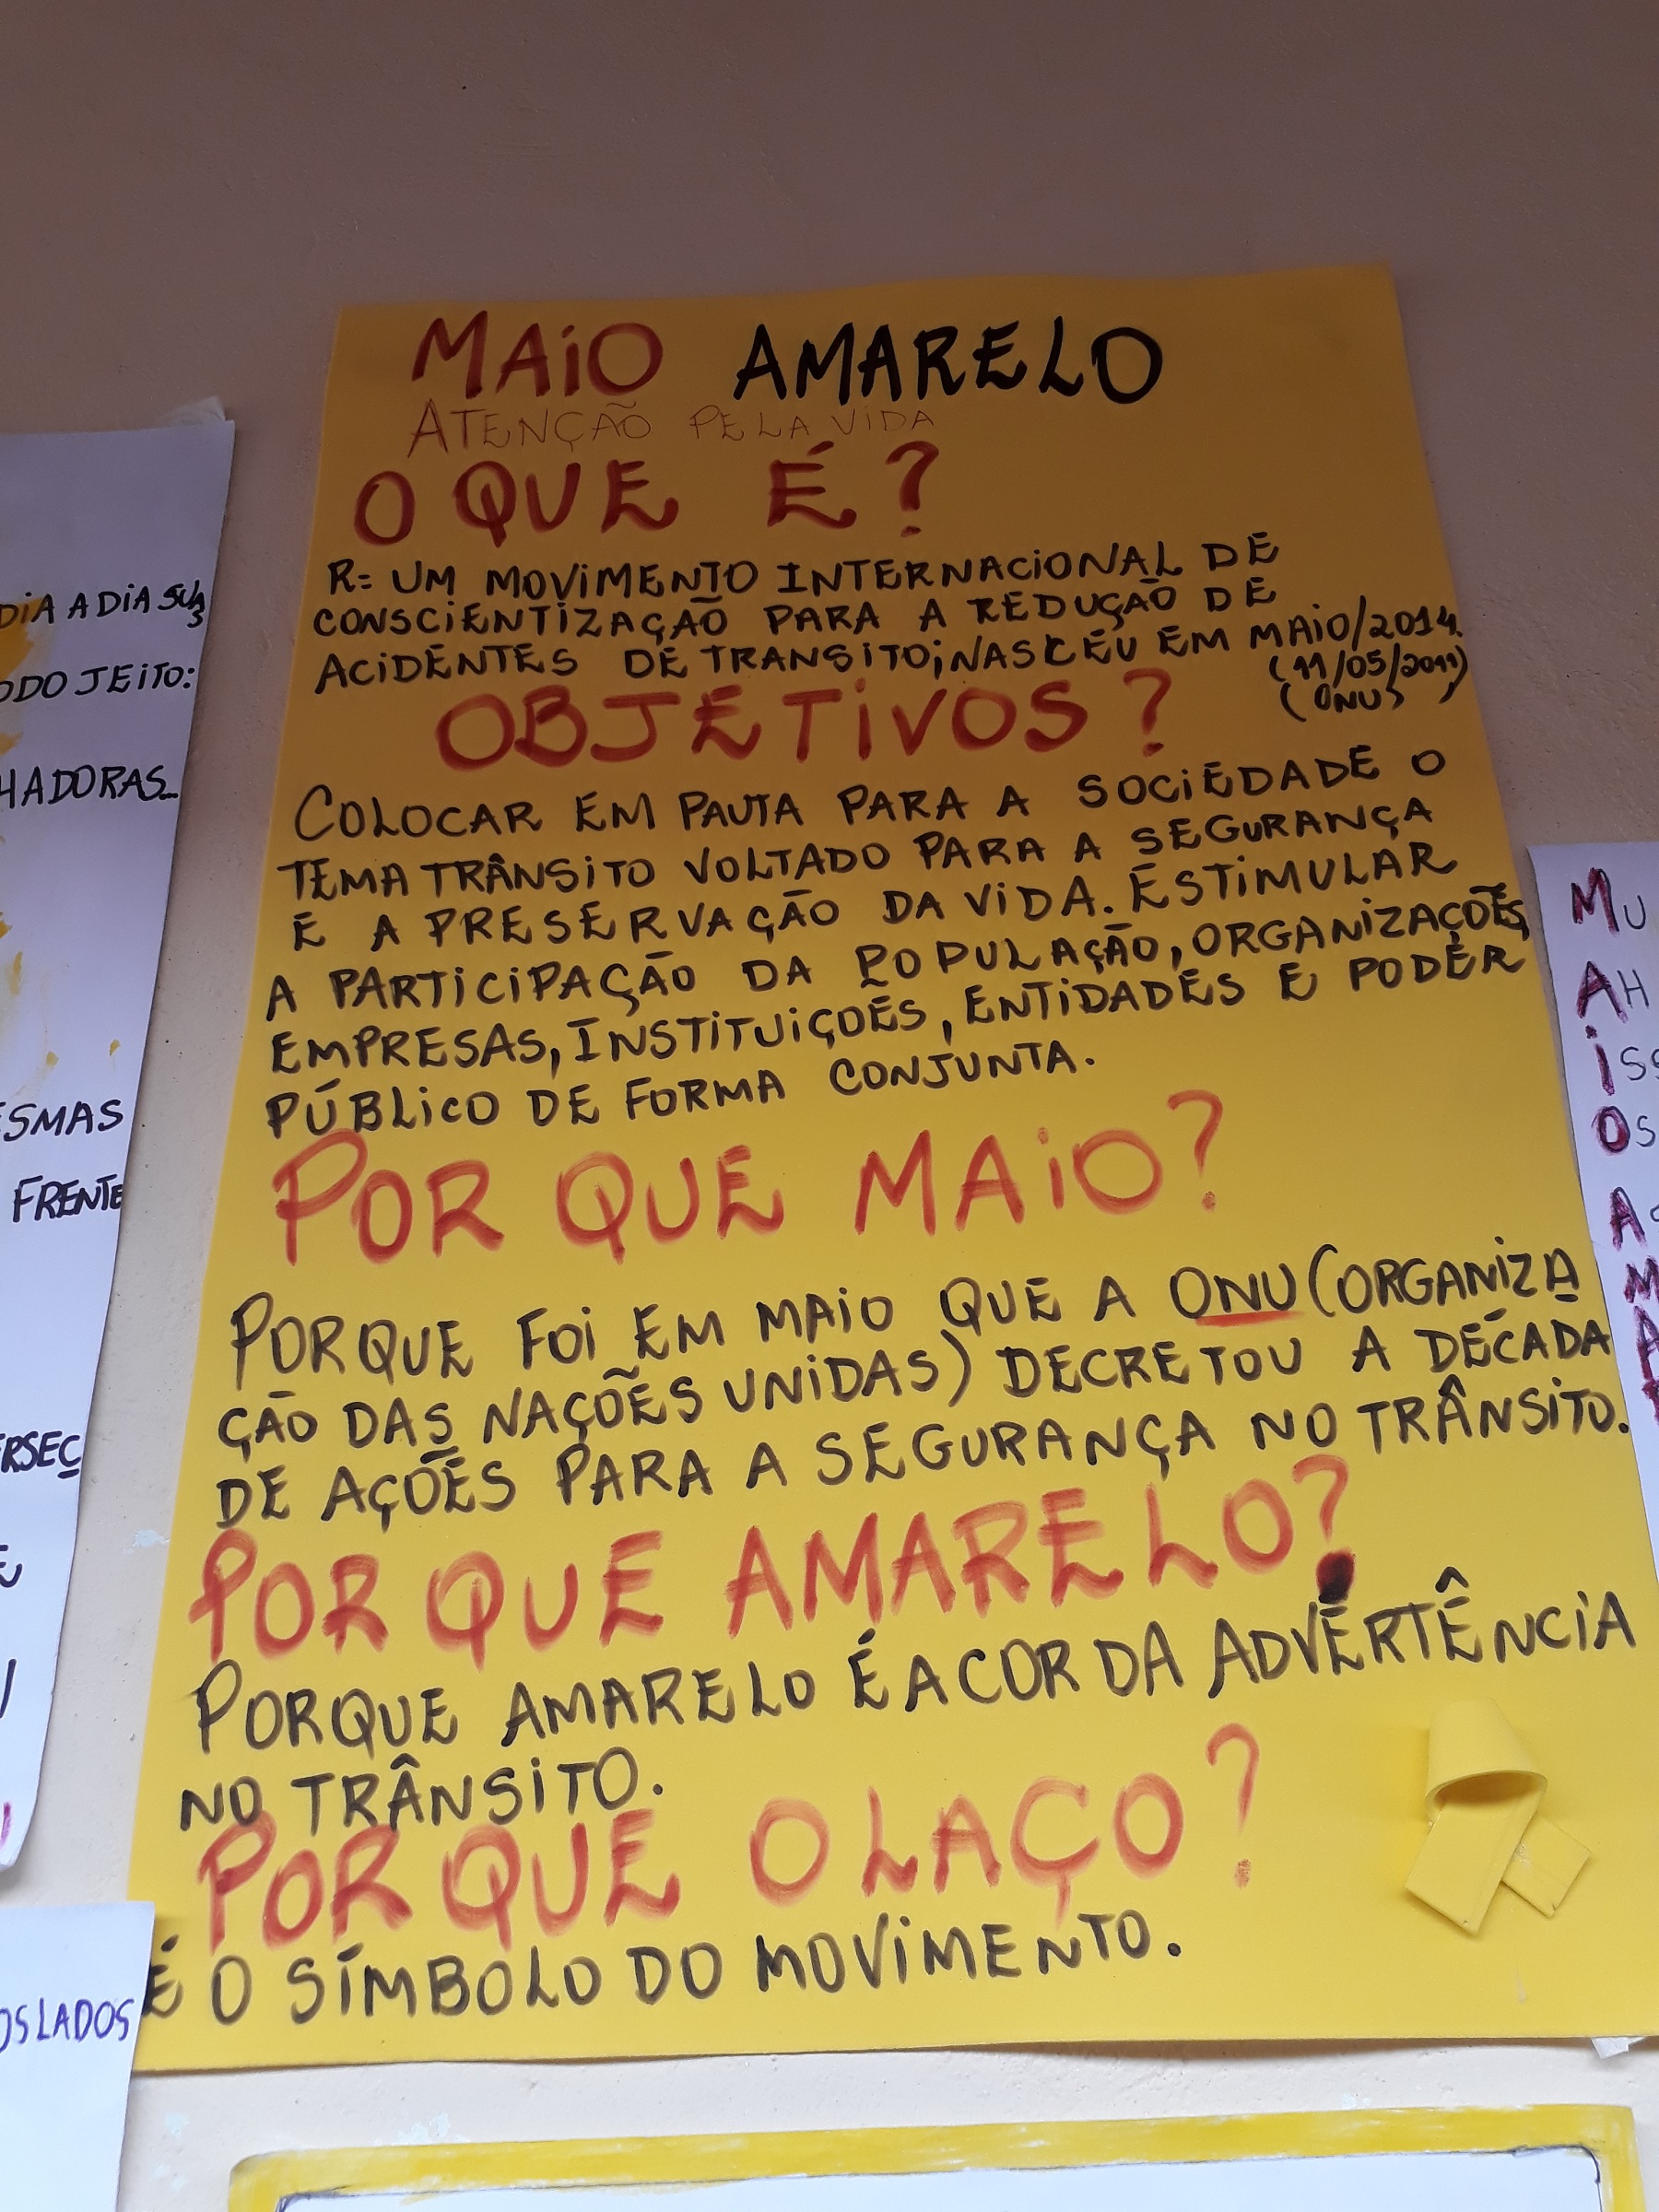 MAIO AMARELO
ATENÇÃO PELA VIDA
O QUE É?
R= UM MOVIMENTO INTERNACIONAL DE
CONSCIENTIZAÇÃO PARA A REDUÇÃO DE
ACIDENTES DE TRANSITO; NASCEU EM MAIO/2014.
(11/05/2011)
(ONU)
OBJETIVOS?
COLOCAR EM PAUTA PARA A SOCIEDADE O
TEMA TRÂNSITO VOLTADO PARA A SEGURANÇA
E A PRESERVAÇÃO DA VIDA. ESTIMULAR
A PARTICIPAÇÃO DA POPULAÇÃO, ORGANIZAÇÕES,
EMPRESAS, INSTITUIÇÕES, ENTIDADES E PODER
PÚBLICO DE FORMA CONJUNTA.
POR QUE MAIO?
PORQUE FOI EM MAIO QUE A ONU (ORGANIZA
ÇÃO DAS NAÇÕES UNIDAS) DECRETOU A DÉCADA
DE AÇÕES PARA A SEGURANÇA NO TRÂNSITO.
POR QUE AMARELO?
PORQUE AMARELO É A COR DA ADVERTÊNCIA
NO TRÂNSITO.
POR QUE O LAÇO?
É O SÍMBOLO DO MOVIMENTO.
DIA A DIA SUA
ODO JEITO:
HADORAS...
ESMAS
FRENTE
ERSEÇ
OS LADOS
MU
AH
ISS
OS
A
M
A